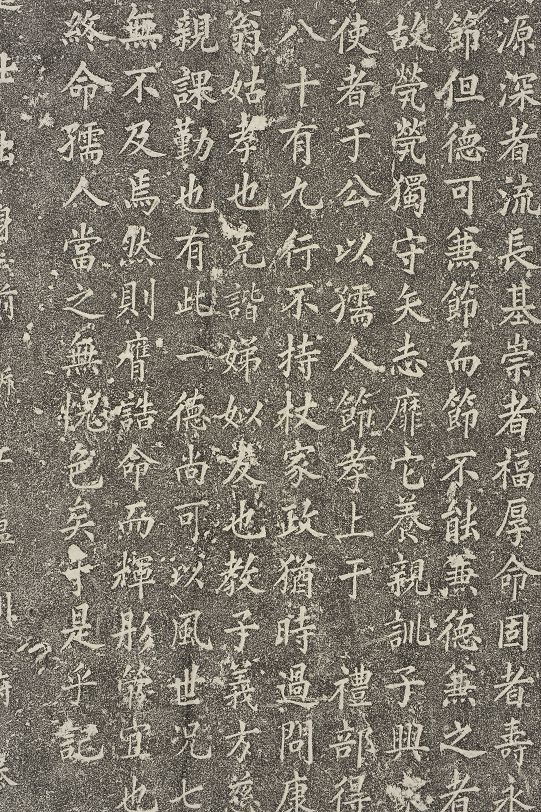 源深者流長基崇者楅厚命固者壽永
節但德可兼節而節不能兼德兼之者
故煢煢獨守矢志靡它養親訓子興
使者于公以孺人節孝上于禮部得
八十有九行不持杖家政猶時過問康
翁姑孝也克諧娣姒友也教子義方慈
親課勤也有此一德尚可以風世况七
無不及焉然則膺誥命而輝彤管宜也
終命孺人當之無愧色矣于是乎記